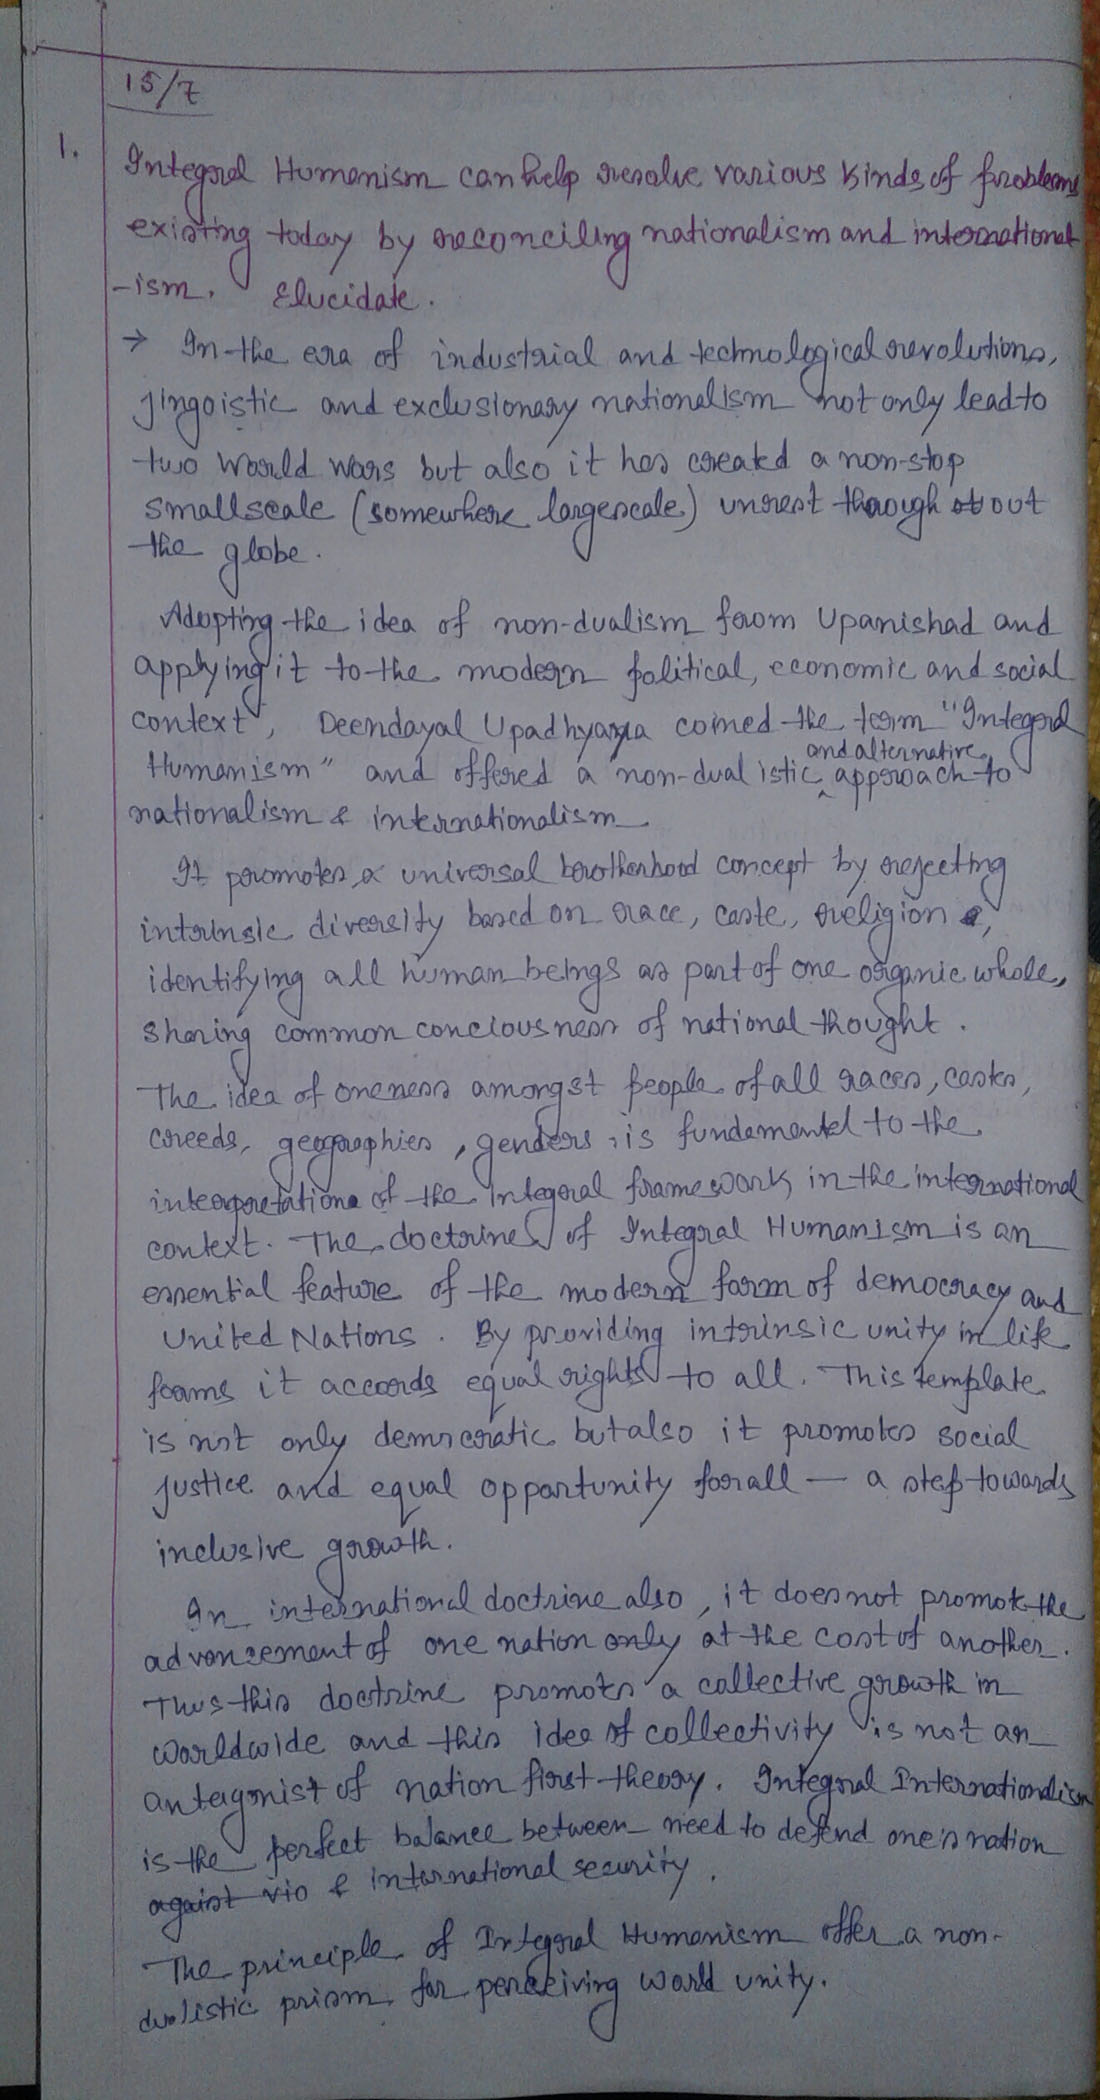 15/7
1. Integral Humanism can help resolve various kinds of problems
existing today by reconciling nationalism and international
-ism. Elucidate.
→ In the era of industrial and technological revolutions,
jingoistic and exclusionary nationalism not only lead to
two World Wars but also it has created a non-stop
smallscale (somewhere largescale) unrest through out
the globe.
Adopting the idea of non-dualism from Upanishad and
applying it to the modern political, economic and social
context, Deendayal Upadhyaya coined the term "Integral
Humanism" and offered a non-dualistic and alternative approach to
nationalism & internationalism
It promotes a universal brotherhood concept by rejecting
intrinsic diversity based on race, caste, religion,
identifying all human beings as part of one organic whole,
sharing common conciousness of national thought.
The idea of oneness amongst people of all races, castes,
creeds, geographies, genders, is fundamental to the
interpretations of the integral framework in the international
context. The doctrines of Integral Humanism is an
essential feature of the modern form of democracy and
United Nations. By providing intrinsic unity in life
forms it accords equal rights to all. This template
is not only democratic but also it promotes social
justice and equal opportunity for all — a step towards
inclusive growth.
In international doctrine also, it does not promote the
advancement of one nation only at the cost of another.
Thus this doctrine promotes a collective growth in
worldwide and this idea of collectivity is not an
antagonist of nation first theory. Integral Internationalism
is the perfect balance between need to defend one's nation
against vio & international security.
The principle of Integral Humanism offer a non-
dualistic prism for perceiving world unity.